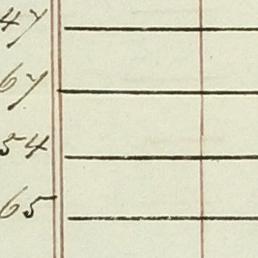 47
67
54
65